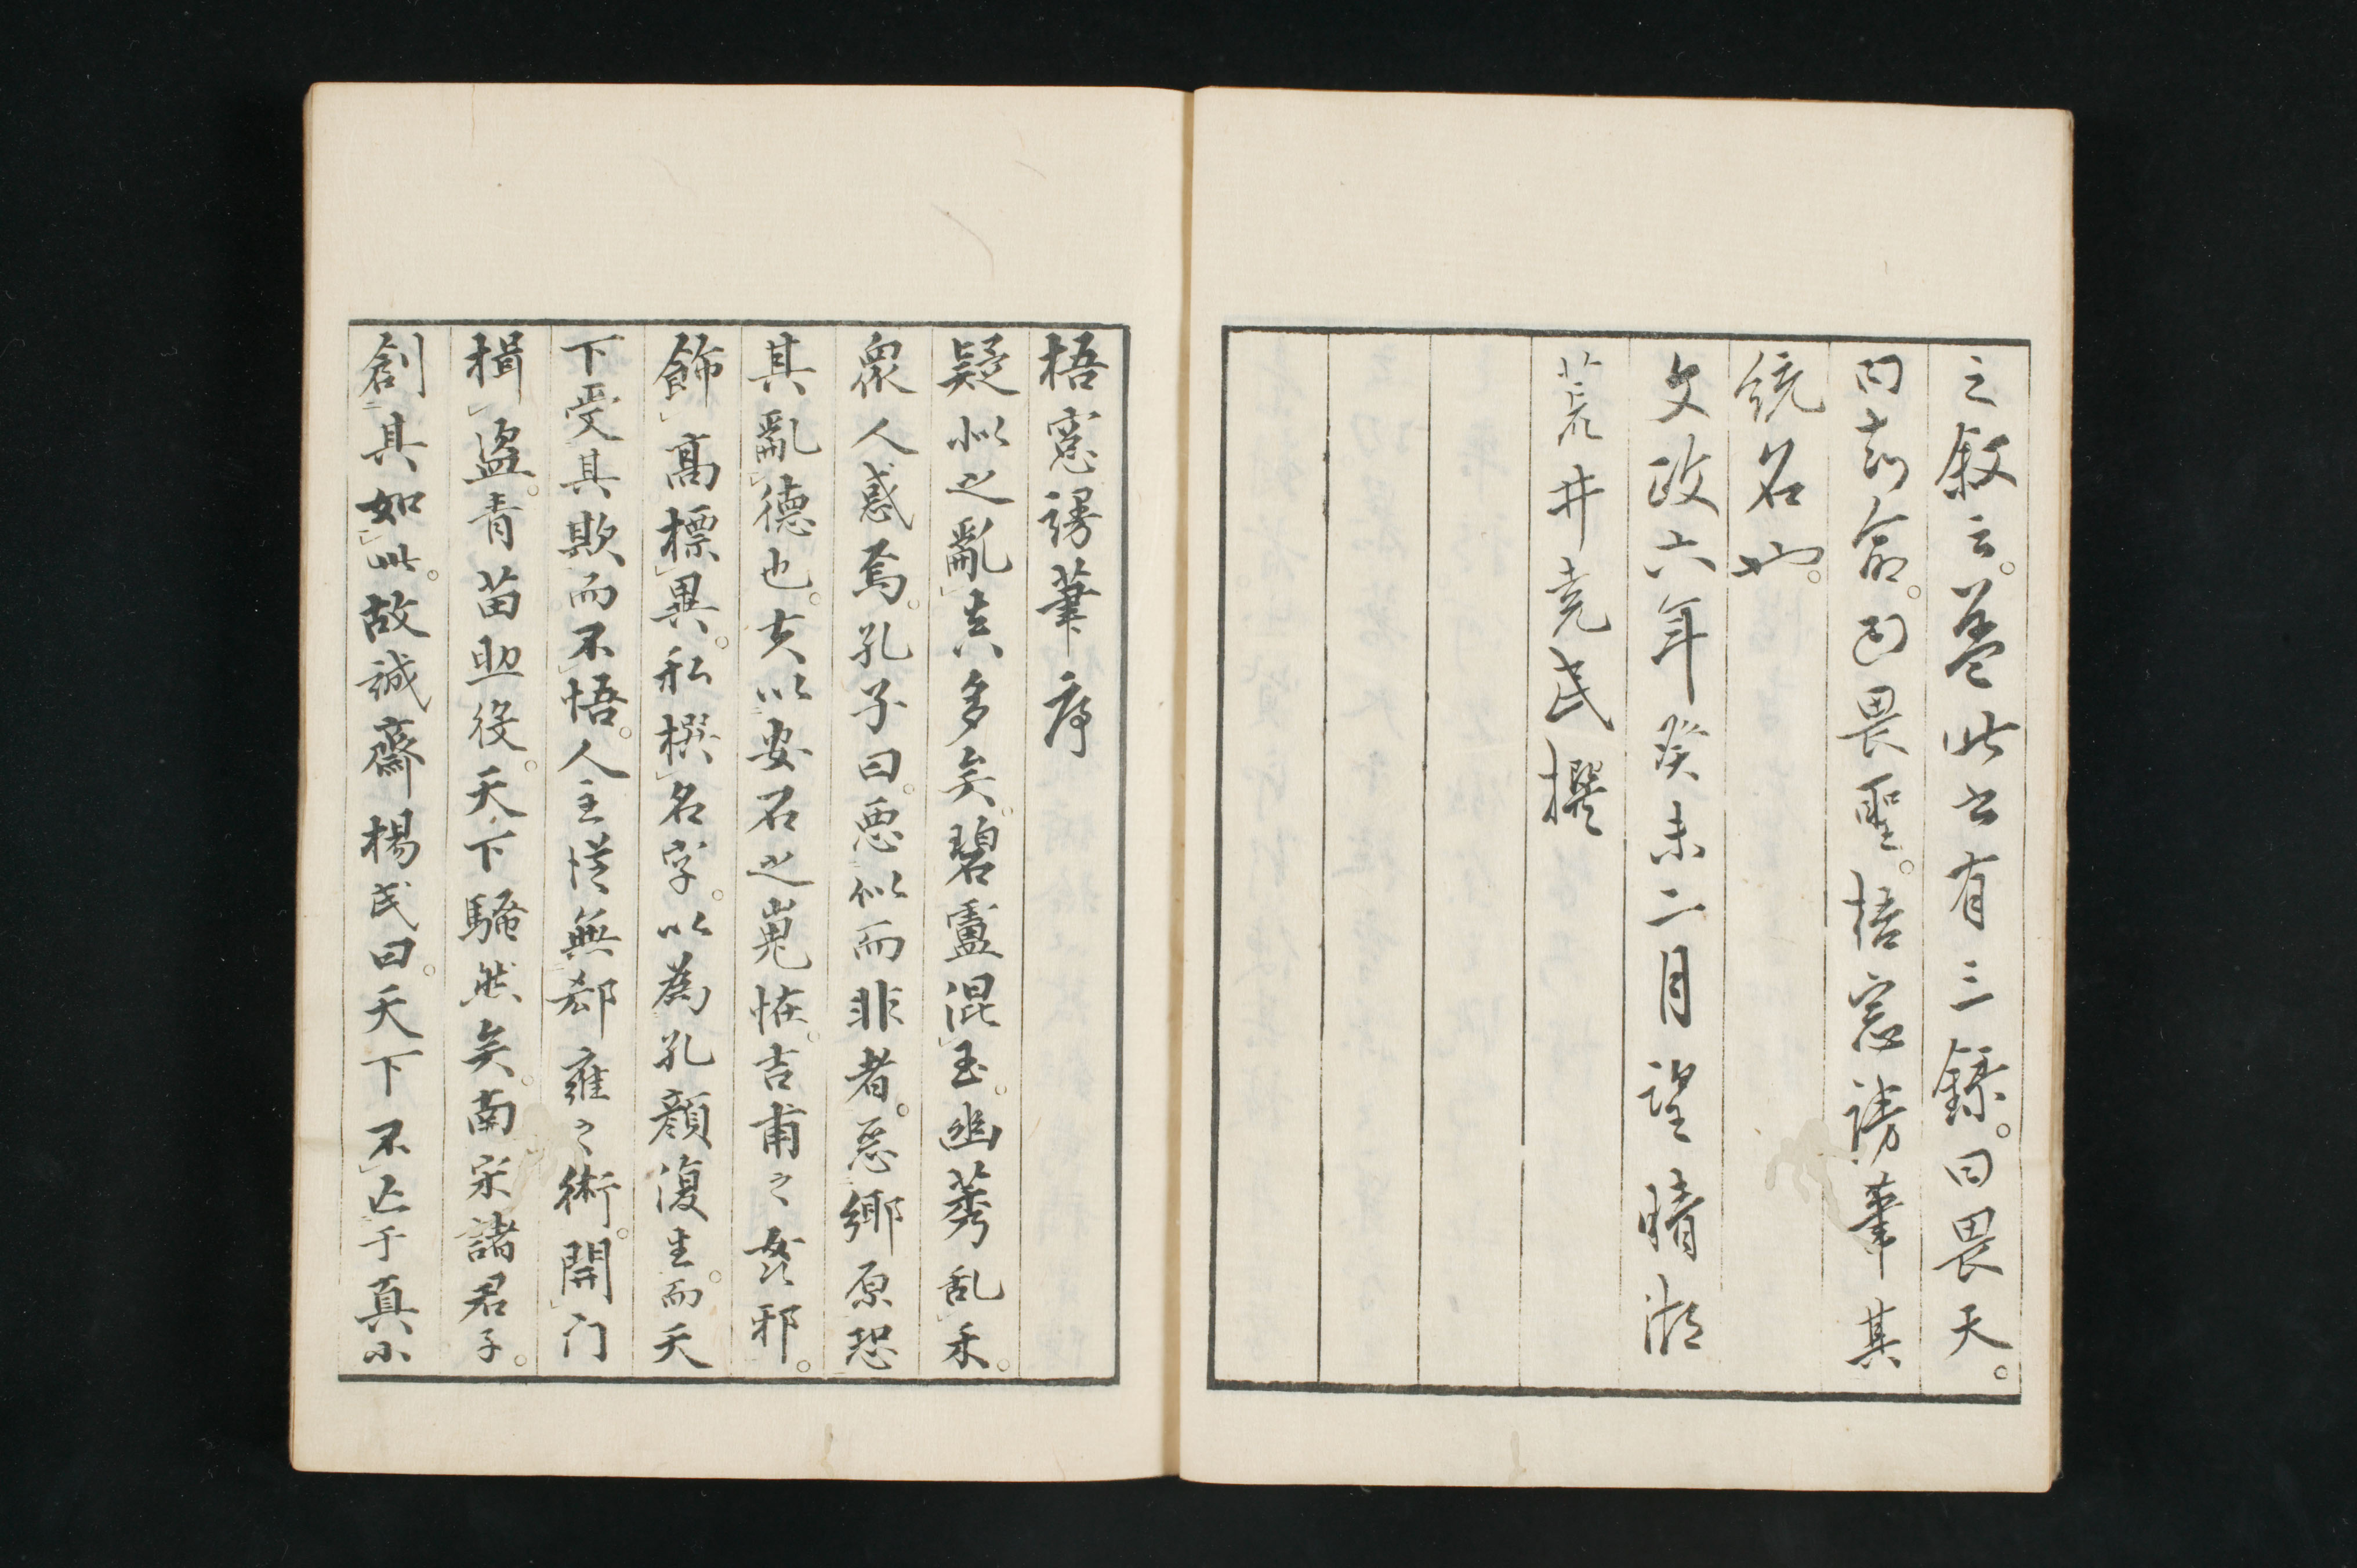 之叙云。蓋此書有三録。曰畏天。
曰畏命。曰畏聖。梧窓謗筆其
統名也。
文政六年癸未二月望晴湖
荒井堯民撰
梧窻謗筆序
疑似之亂真多矣。碧盧混玉。幽莠乱禾。
衆人惑焉。孔子曰。惡似而非者。惡鄉原恐
其亂德也。夫以安石之嵬恠。吉甫之姦邪。
飾高標異。私撰名字。以為孔顔復生。而天
下受其欺而不悟。人主墜無郤雍之術。開门
楫盜。青苗助役。天下騷然矣。南宋諸君子。
創其如此。故誠齋楊氏曰。天下不亡于真小